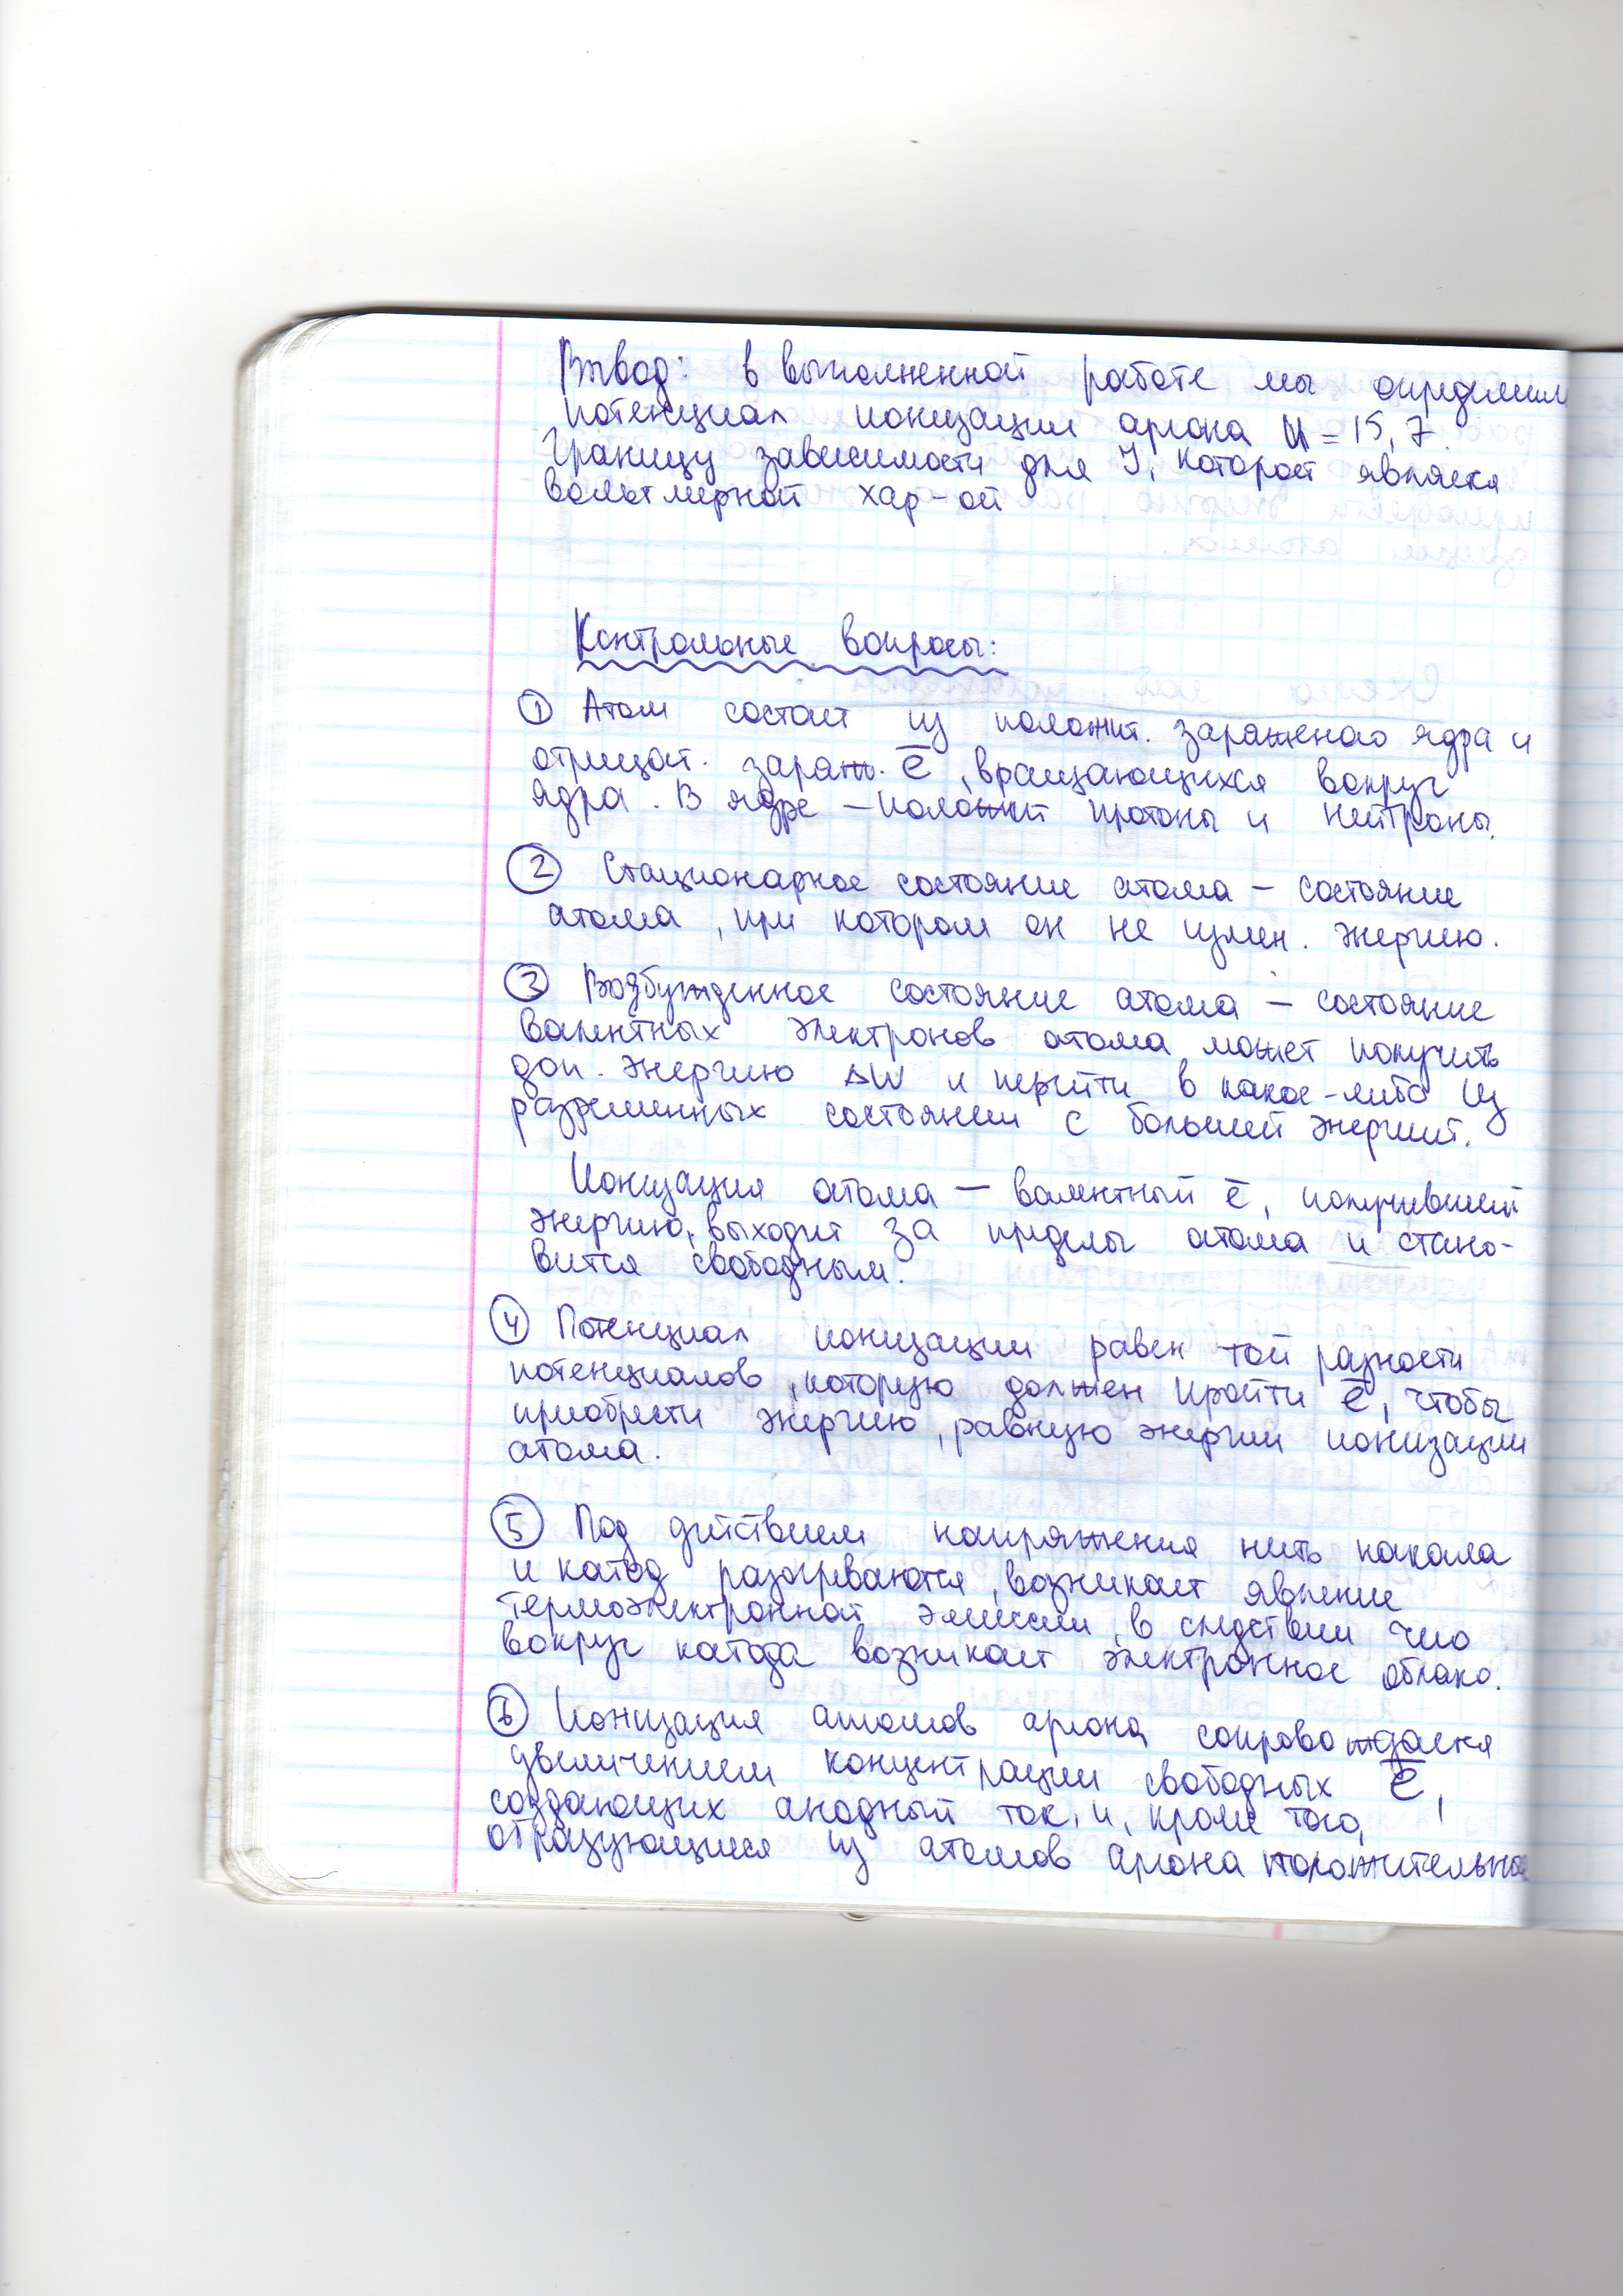 Вывод: в выполненной работе мы определили
потенциал ионизации аргона U = 15,7.
Границу зависимости для J, которой является
вольтмерной хар-ой
Контрольные вопросы:
① Атом состоит из положит. заряженого ядра и
отрицат. заряж. e̅, вращающихся вокруг
ядра. В ядре – положит протоны и нейтроны.
② Стационарное состояние атома – состояние
атома, при котором он не измен. энергию.
③ Возбужденное состояние атома – состояние
валентных электронов атома может получить
доп. энергию ΔW и перейти в какое-либо из
разрешенных состоянии с большей энергией.
Ионизация атома – валентный e̅, получивший
энергию, выходит за пределы атома и стано-
вится свободным.
④ Потенциал ионизации равен той разности
потенциалов, которую должен пройти e̅, чтобы
приобрести энергию, равную энергии ионизации
атома.
⑤ Под действием напряжения нить накала
и катод разогреваются, возникает явление
термоэлектронной эмиссии, в следствии чего
вокруг катода возникает электронное облако.
⑥ Ионизация атомов аргона сопровождается
увеличением концентрации свободных e̅,
создающих анодный ток, и, кроме того,
образующиеся из атомов аргона положительные